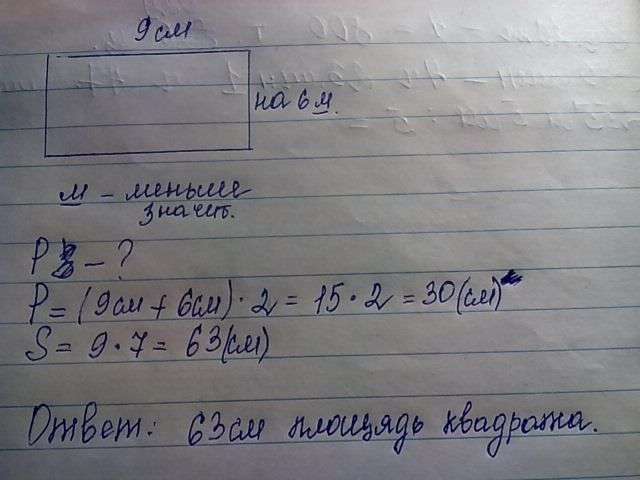 9 см
на 6 м.
м – меньше
значит.
P – ?
P = (9см + 6см) · 2 = 15 · 2 = 30 (см)
S = 9 · 7 = 63 (см)
Ответ: 63 см площядь квадрата.